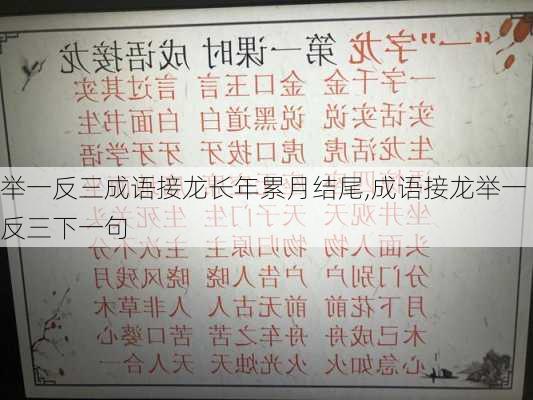 “一”字龙 第一课时 成语接龙
一字千金 金口玉言 言过其实
实话实说 说黑道白 白面书生
生龙活虎 虎口拔牙 牙牙学语
举一反三成语接龙长年累月结尾,成语接龙举一
反三下一句
坐井观天 天子门生 生死关头
头面人物 物归原主 主次不分
分门别户 户告人晓 晓风残月
月下花前 前无古人 人非草木
木已成舟 舟车之苦 苦口婆心
心急如火 火光烛天 天人合一